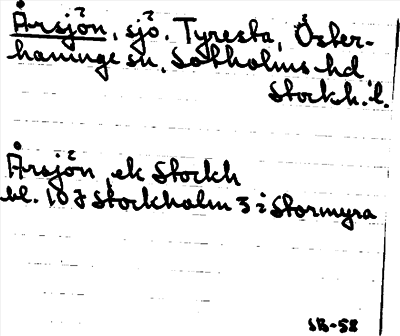 Årsjön, sjö. Tyresta, Öster-
haninge sn, Sotholms hd
Stockh. l.
Årsjön ek Stockh
bl. 10 J Stockholm 3 i Stormyra
SB-58